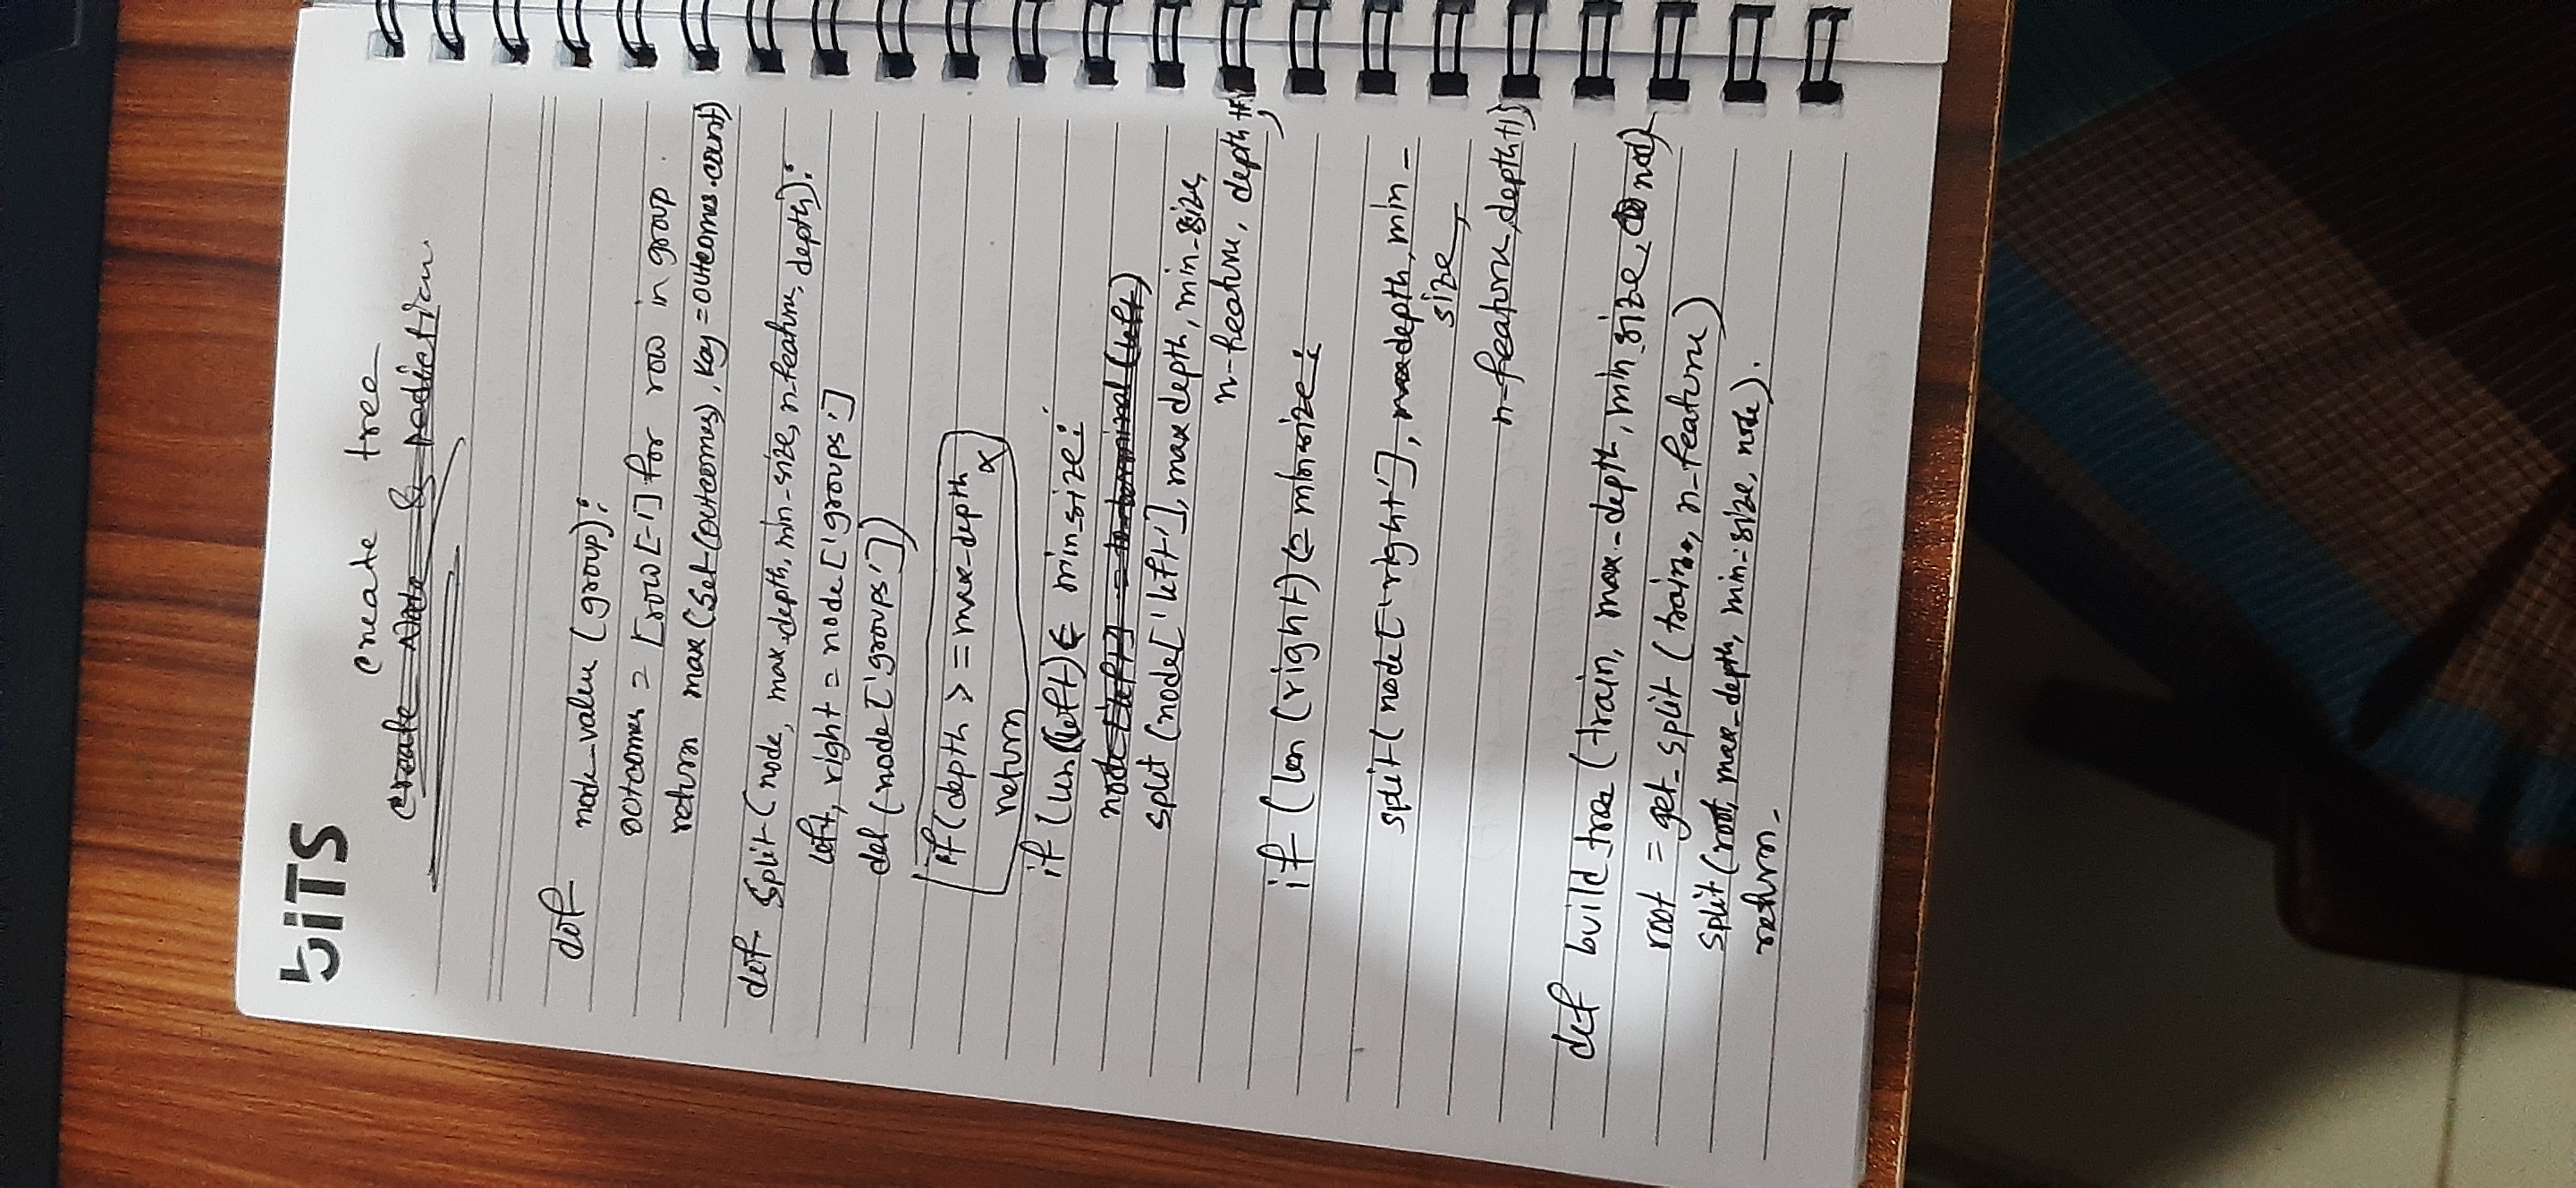 biTS
create tree
create Node & Pediction.
def node_value (group):
outcomes = [row[-1] for row in group
return max (Set(outcomes), Key = outcomes.count)
def Split (node, max_depth, min_size, n_feature, depth):
left, right = node ['groups']
del (node ['groups'])
if (depth >= max_depth
return
if (len(left) <= min_size:
node ['left'] = to_terminal (left)
split (node['left'], max depth, min_size,
n-feature, depth +1)
if (len (right) <= min size:
split (node ['right'], max depth, min -
size,
n-feature, depth+1)
def build_tree (train, max_depth, min_size,
root = get_split (train, n_feature)
Split (root, max_depth, min_size, node).
return